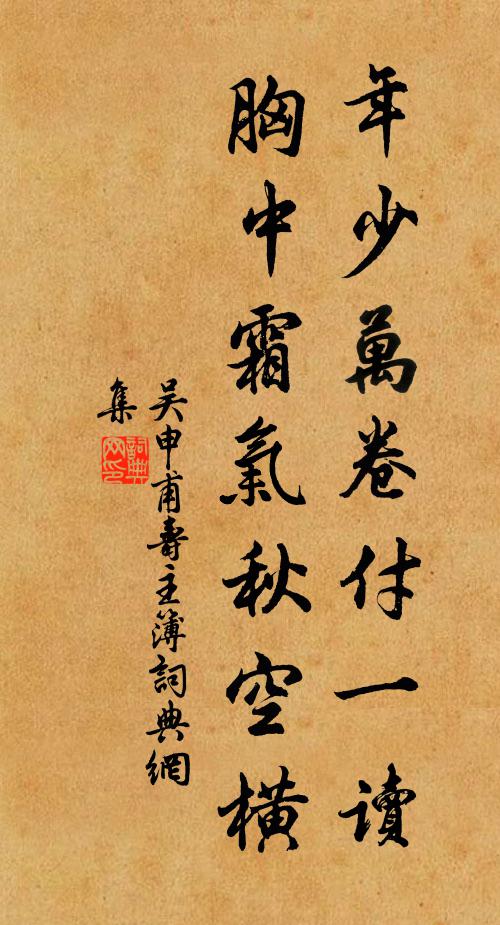 年少萬卷付一讀
胸中霜氣秋空橫
吴申甫壽主簿詞典網
集
詞典
网印